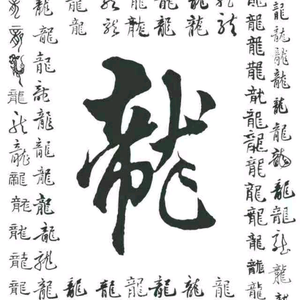 龍
龍龍龍龍龍龍
龍龍龍龍龍龍
龍龍龍龍龍龍龍龍龍龍
龍龍龍龍龍龍龍龍龍龍龍
龍龍龍龍龍龍龍龍龍龍龍龍
龍龍龍龍龍龍龍龍龍龍龍
龍龍龍龍龍龍